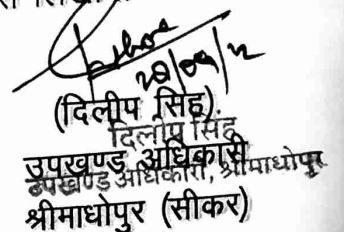 (दिलीप सिंह).
दिलीप सिंह
उपखण्ड अधिकारी
उपखण्ड अधिकारी, श्रीमाधोपुर
श्रीमाधोपुर (सीकर)